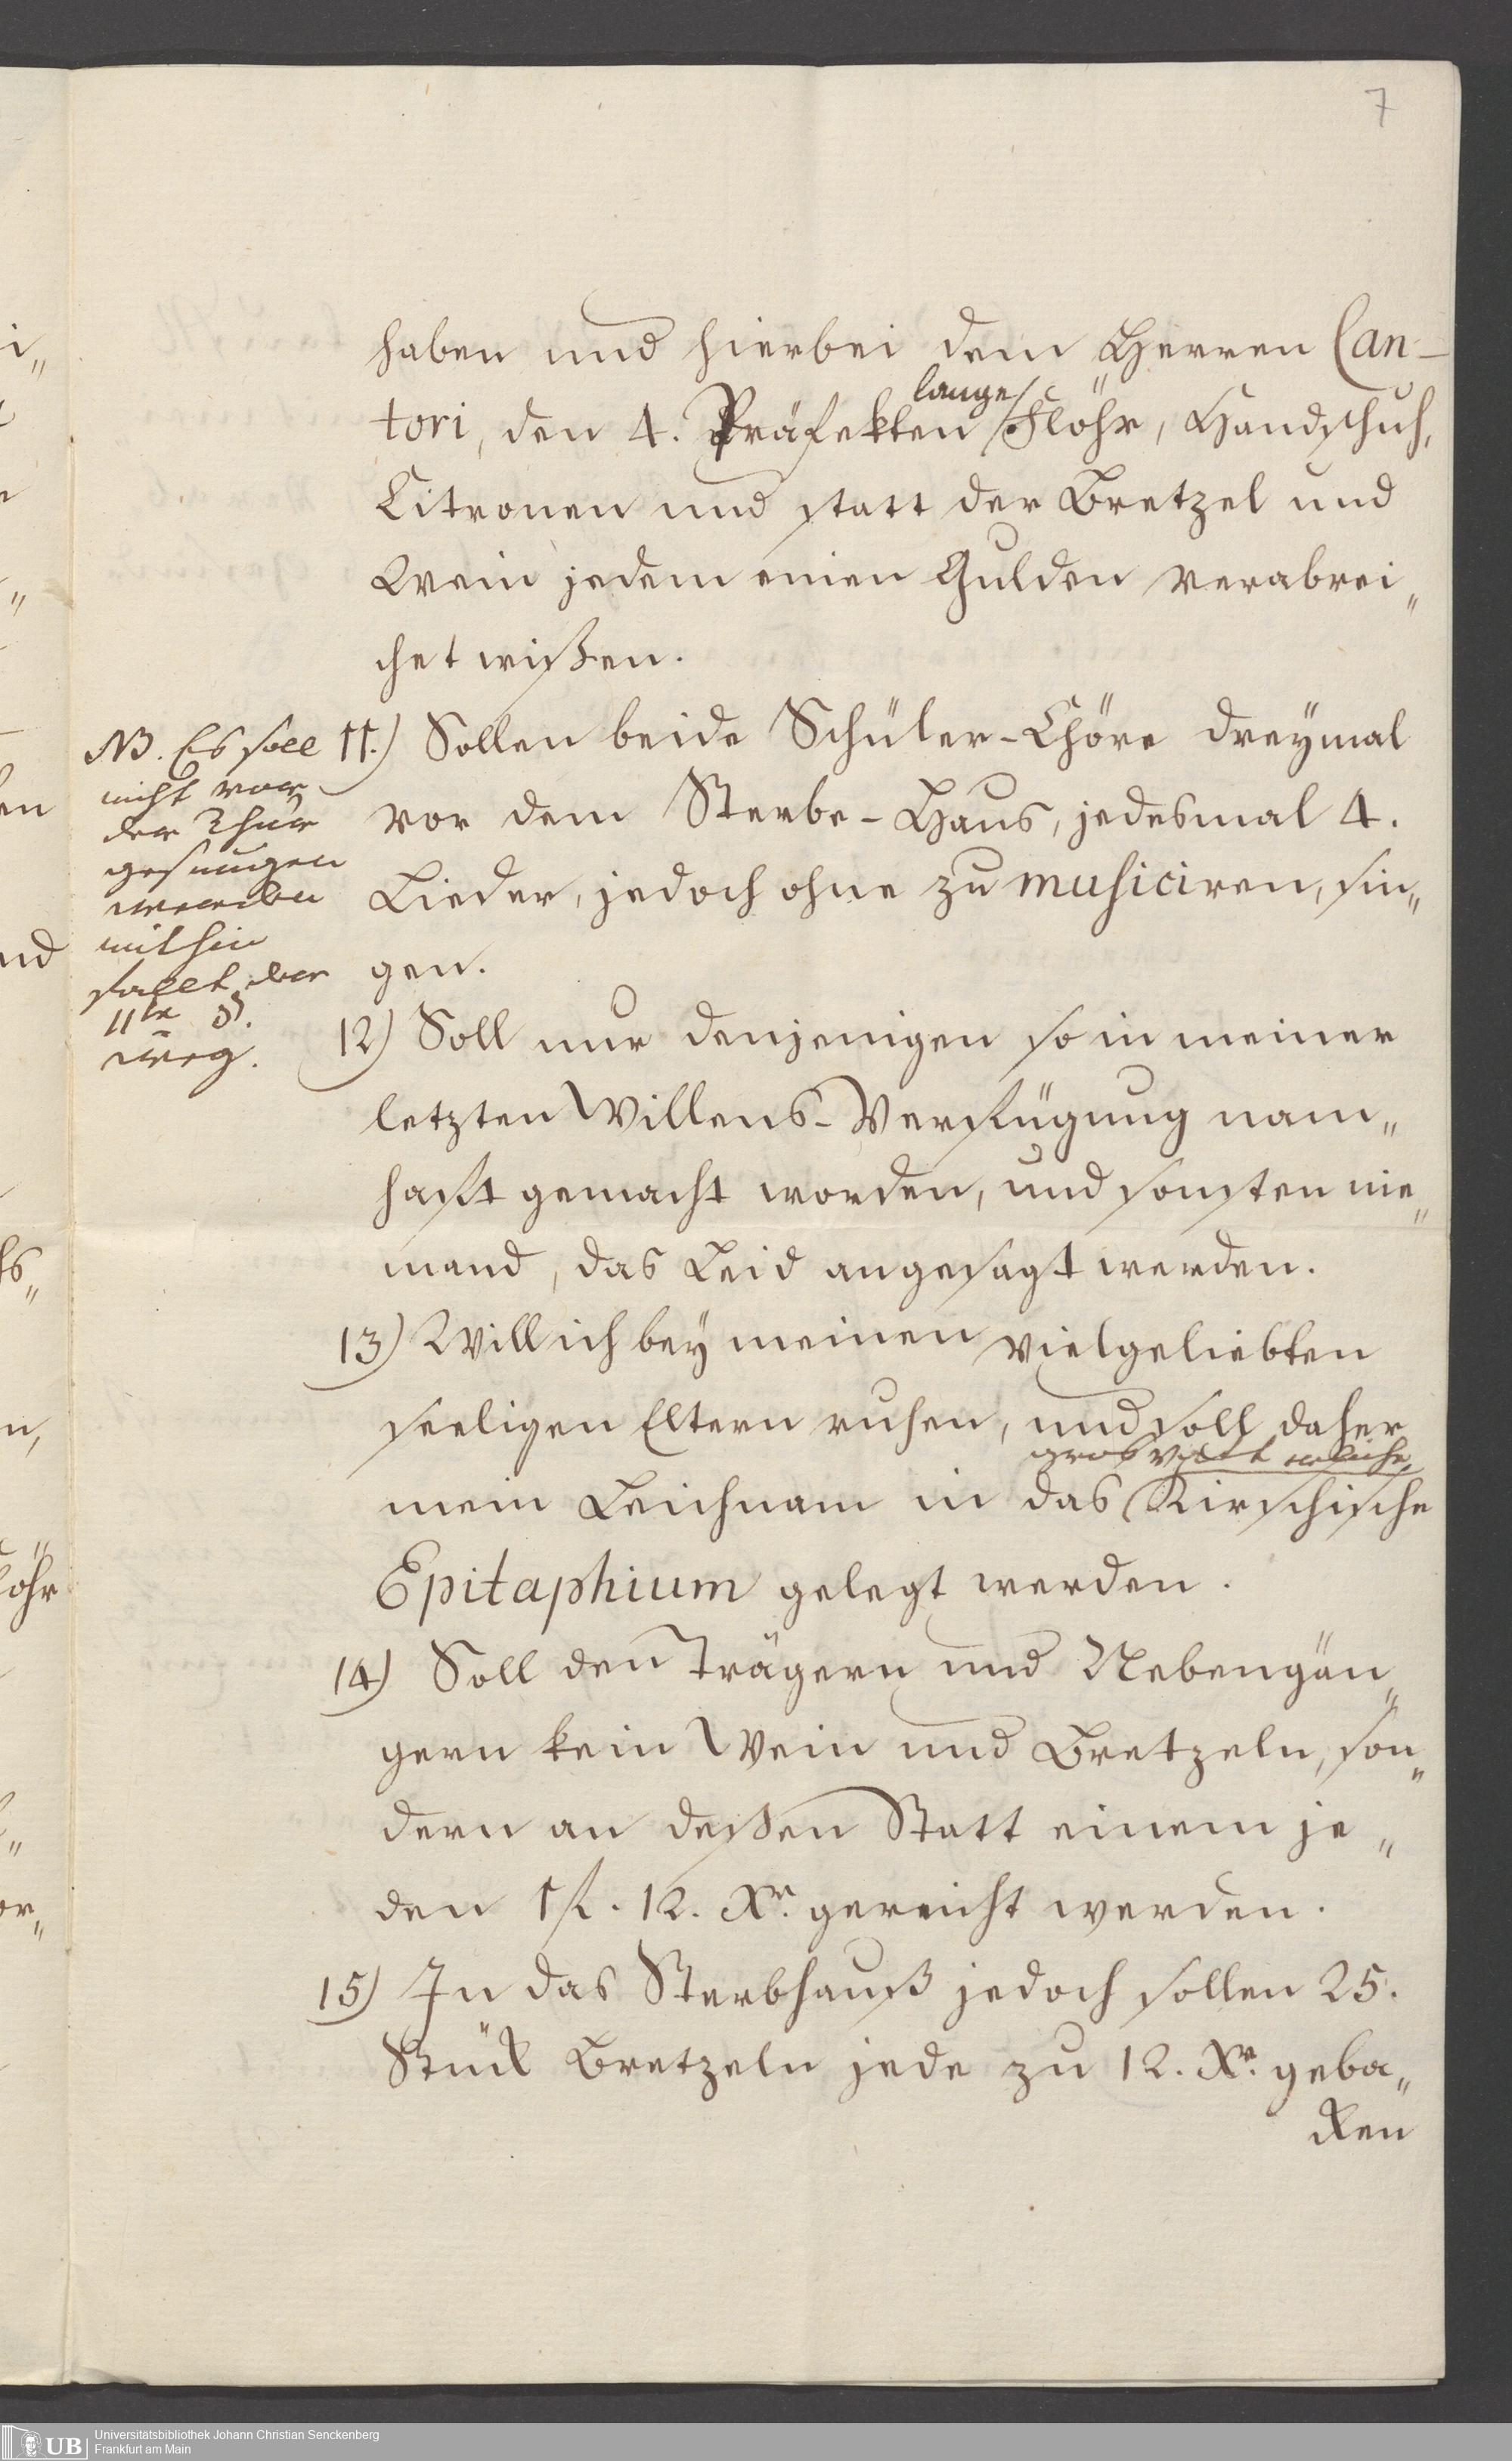 7
haben und hierbei dem Herren Can-
lange
tori, den 4. Präfekten Flöhr, Handschuh,
Citronen und statt der Bretzel und
Wein jedem einen Gulden verabrei„
chet wißen.
NB. Es soll
nicht vor
der Thür
gesungen
werden
mithin
fällt der
11te §.
weg.
11.) Sollen beide Schüler-Chöre dreÿmal
vor dem Sterbe-Haus, jedesmal 4.
Lieder, jedoch ohne zu musiciren, sin„
gen.
12) Soll nur denjenigen so in meiner
letzten Willens-Verfügung nam„
haft gemacht worden, und sonsten nie„
mand, das Leid angesagt werden.
13) Will ich beÿ meinen vielgeliebten
seeligen Eltern ruhen, und soll daher
mein Leichnam in das Kirschische
Epitaphium gelegt werden.
14) Soll den Trägern und Nebengän„
gern kein Wein und Bretzeln, son„
dern an deßen Statt einem je„
den 1 f. 12. Xr. gereicht werden.
15) In das Sterbhauß jedoch sollen 25.
Stük Bretzeln jede zu 12. Xr. geba„
ken
Universitätsbibliothek Johann Christian Senckenberg
Frankfurt am Main
UB